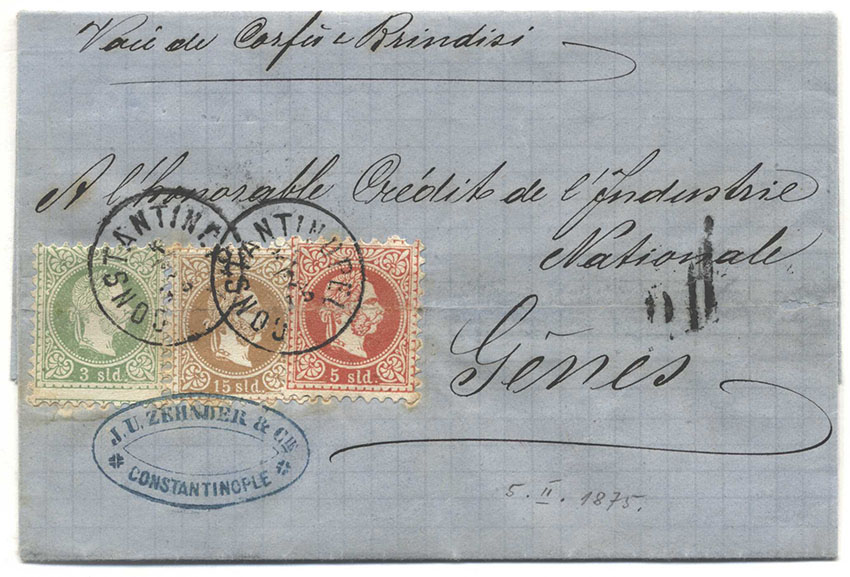 Voie de Corfù & Brindisi
A l'honorable Crédit de l'Industrie
Nationale
Gênes
CONSTANTINOPEL
3 sld.
15 sld.
5 sld.
J. U. ZEHNDER & CIE
CONSTANTINOPLE
5. II. 1875.